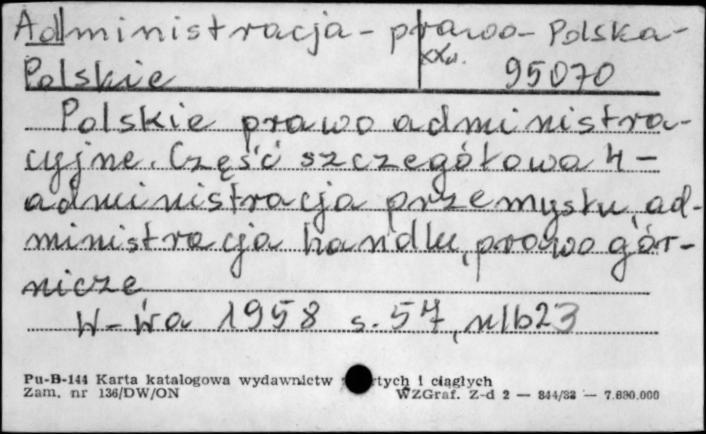 Administracja - prawo - Polska -
XXw.
Polskie 95070
Polskie prawo administra-
cyjne. Część szczegółowa 4 -
administracja przemysłu, ad-
ministracja handlu, prawo gór-
nicze
W-wa 1958 s. 57, nlb 23
Pu-B-144 Karta katalogowa wydawnictw i ciągłych
Zam. nr 136/DW/ON WZGraf. Z-d 2 — 844/82 — 7.890.000